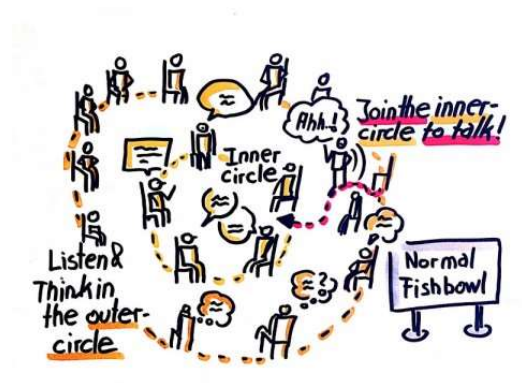 Ahh..!
Join the inner-
circle to talk!
Inner
circle
≈?
Listen &
Think in
the outer-
circle
Normal
Fishbowl